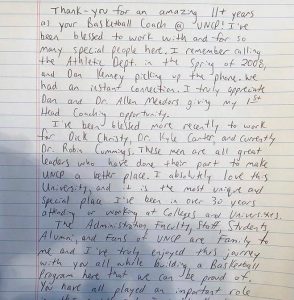 Thank-you for an amazing 11+ years
as your Basketball Coach @ UNCP! I've
been blessed to work with and for so
many special people here. I remember calling
the Athletic Dept. in the Spring of 2008,
and Dan Kenney picking up the phone. We
had an instant connection. I truly appreciate
Dan and Dr. Allen Meadors giving my 1st
Head Coaching opportunity.
I've been blessed more recently to work
for Dick Christy, Dr. Kyle Carter, and currently
Dr. Robin Cummings. These men are all great
leaders who have done their part to make
UNCP a better place. I absolutely love this
University, and it is the most unique and
special place I've been in over 30 years
attending or working at Colleges and Universities.
The Administration, Faculty, Staff, Students,
Alumni, and Fans of UNCP are Family to
me and I've truly enjoyed this journey
with you all while building a Basketball
Program here that we can be proud of.
You have all played an important role